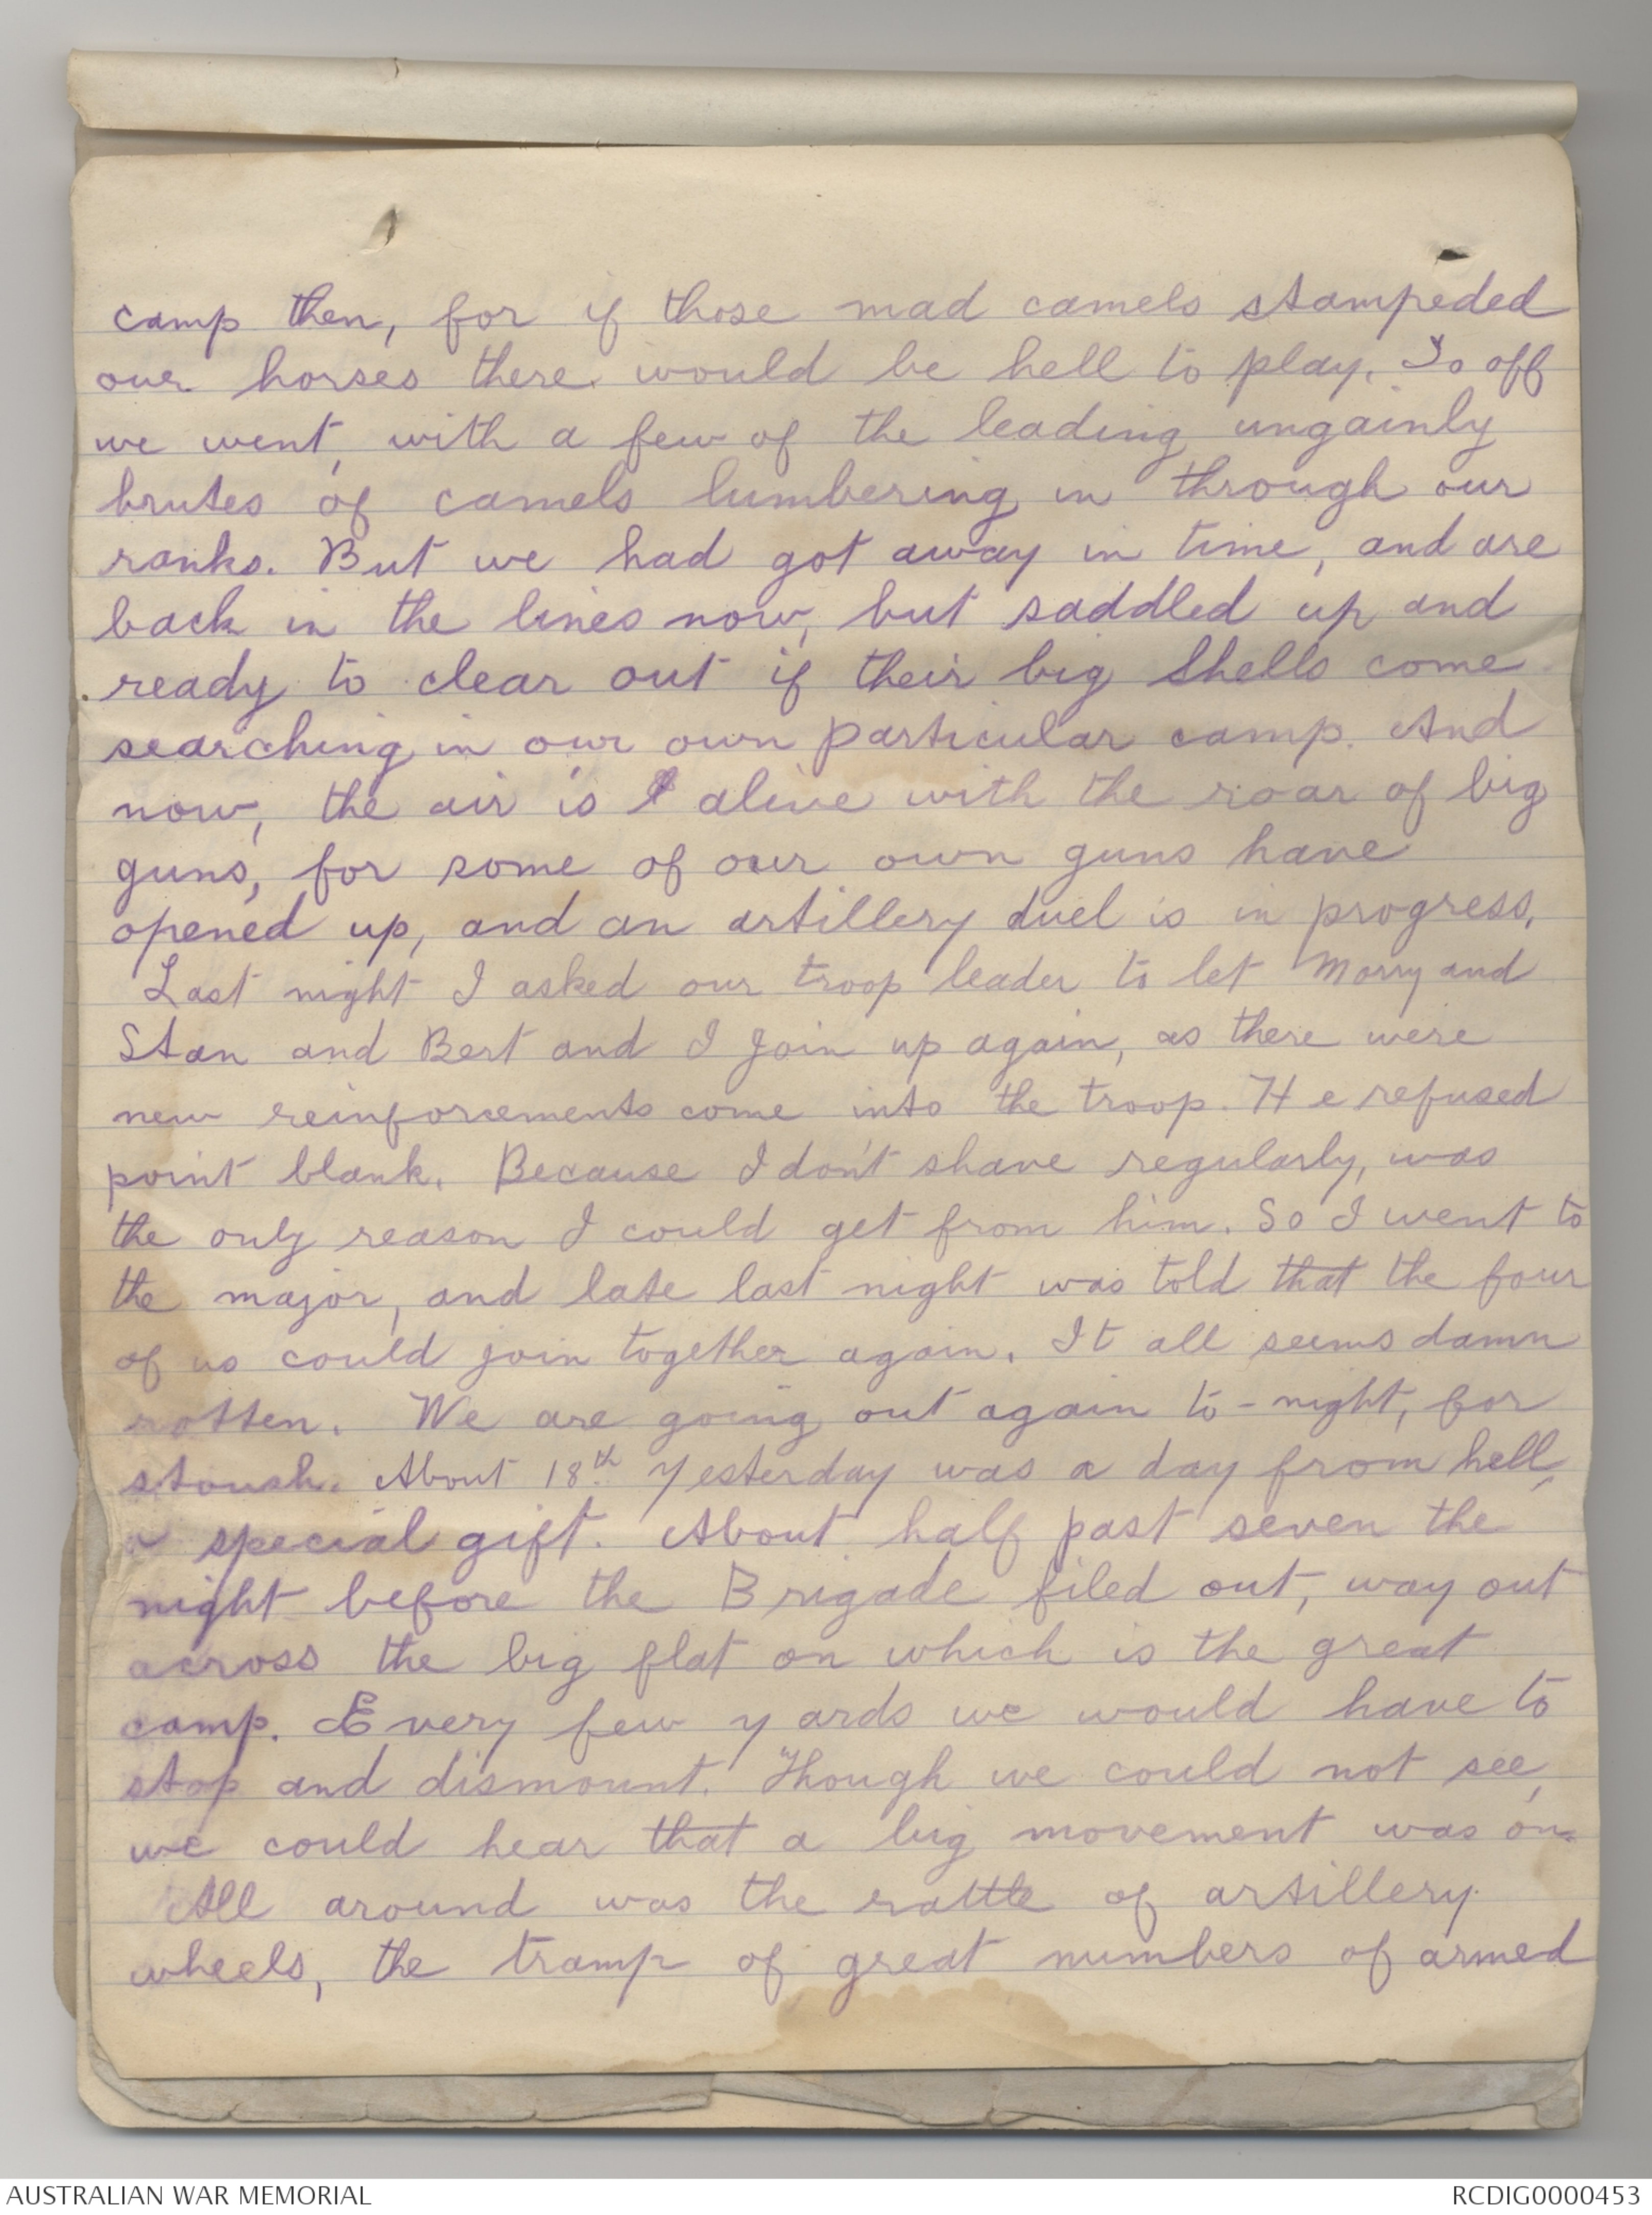 camp then, for if those mad camels stampeded
our horses there would be hell to play. So off
we went, with a few of the leading ungainly
brutes of camels lumbering in through our
ranks. But we had got away in time, and are
back in the lines now, but saddled up and
ready to clear out if their big shells come
searching in our own particular camp. And
now, the air is alive with the roar of big
guns, for some of our own guns have
opened up, and an artillery duel is in progress.
Last night I asked our troop leader to let Morry and
Stan and Bert and I join up again, as there were
new reinforcements come into the troop. He refused
point blank. Because I don't shave regularly, was
the only reason I could get from him. So I went to
the major, and late last night was told that the four
of us could join together again. It all seems damn
rotten. We are going out again to-night, for
stoush. About 18th Yesterday was a day from hell,
a special gift. About half past seven the
night before the Brigade filed out, way out
across the big flat on which is the great
camp. Every few yards we would have to
stop and dismount. Though we could not see,
we could hear that a big movement was on.
All around was the rattle of artillery
wheels, the tramp of great numbers of armed
AUSTRALIAN WAR MEMORIAL
RCDIG0000453